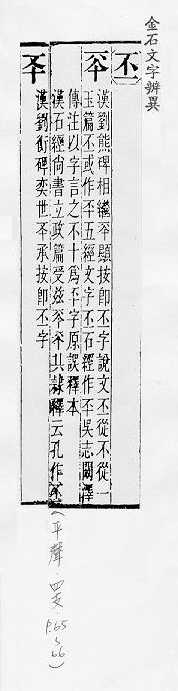 金石文字辨異
丕
㔻
漢劉熊碑相繼㔻顯按即丕字說文丕從不從一
玉篇丕或作㔻五經文字丕石經作㔻吳志闞澤
傳注以字言之不十為㔻字原誤釋本
漢石經尚書立政篇受茲㔻㔻其隸釋云孔作丕
㔻
漢劉衡碑奕世㔻承按即丕字
(平聲·四支·P.65~66)